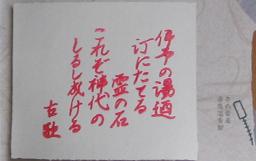 伊予の湯廼
汀にたてる
霊の石
これぞ神代の
しるし
ける
古歌